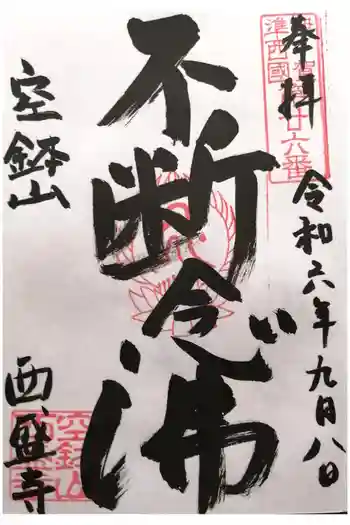 奉拝
賀
廿六番
準西國
令和六年九月八日
不断念佛
空鉢山
西盛寺
空鉢山